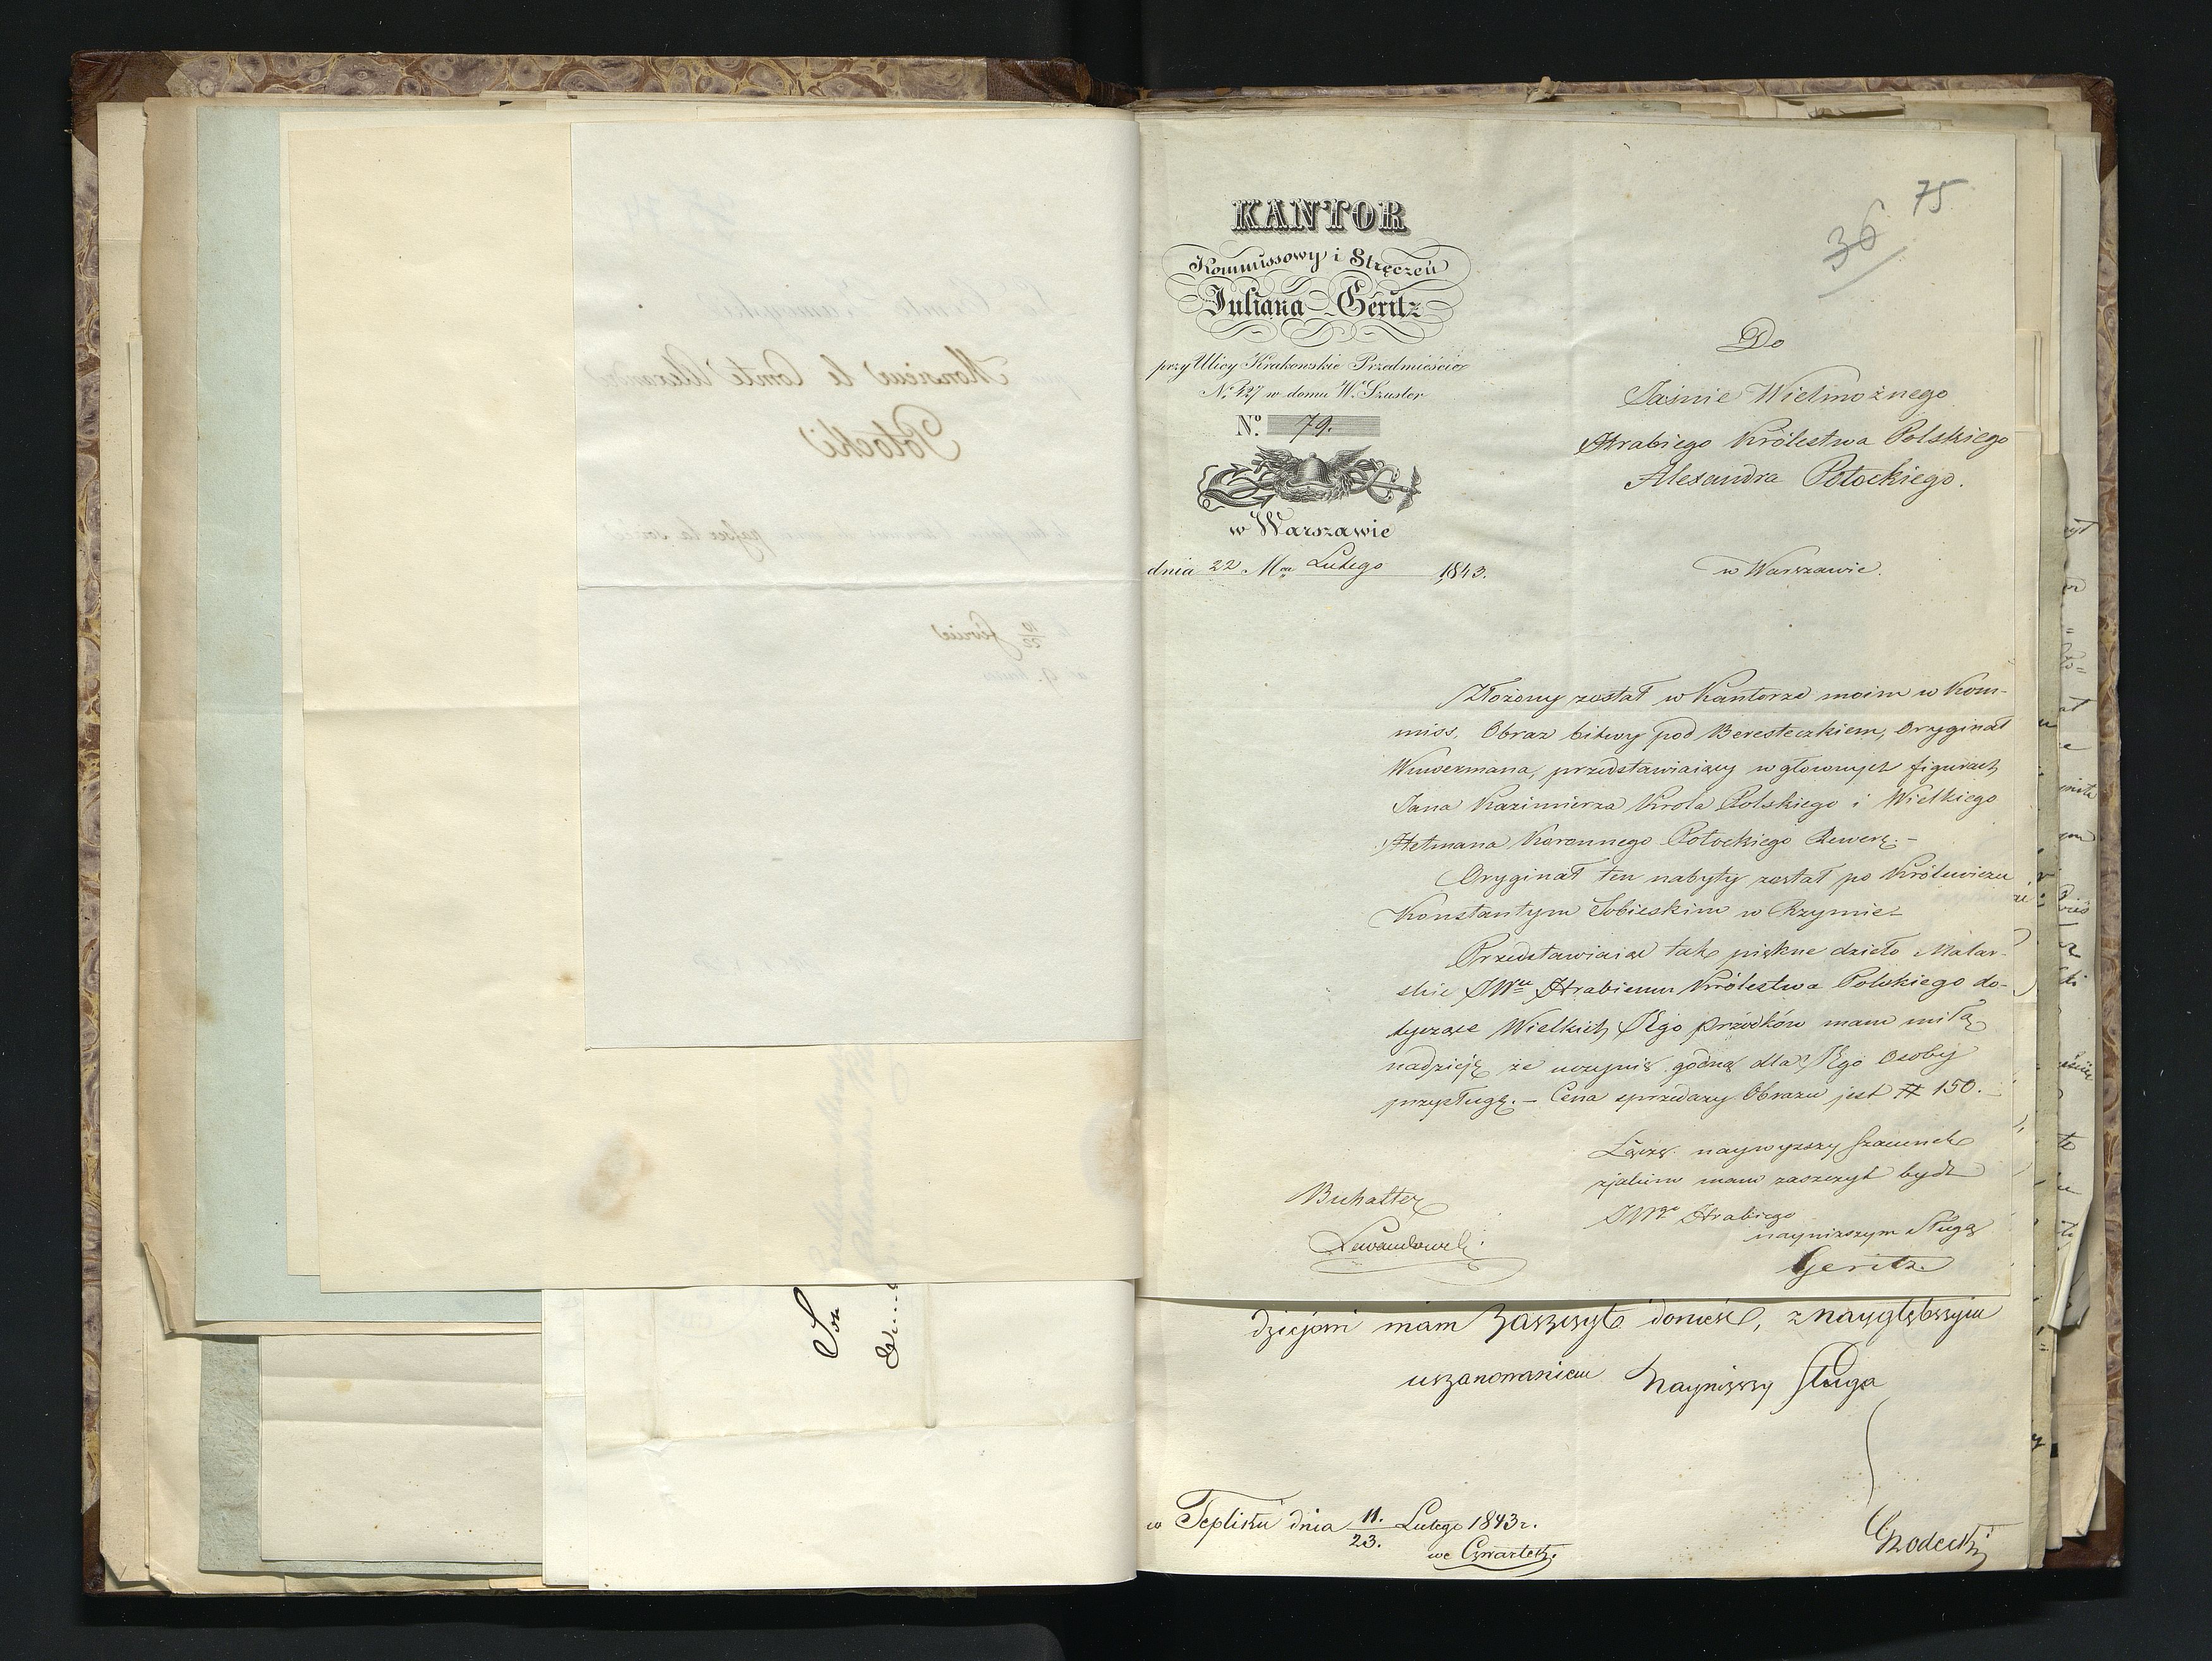 75
36
KANTOR
Kommissowy i Stręczeń
Juliana Geritz
przy Ulicy Krakowskie Przedmieście
N. 427 w domu W. Szuster
No. 79.
w Warszawie
dnia 22 Mca Lutego 1843.
Do
Jaśnie Wielmożnego
Hrabiego Królestwa Polskiego
Alexandra Potockiego.
w Warszawie.
Złożony został w Kantorze moim w Kom-
miss, Obraz bitwy pod Beresteczkiem, Oryginał
Wuwermana, przedstawiaiący w głownych figurach
Jana Kazimierza Krola Polskiego i Wielkiego
Hetmana Koronnego Potockiego Rewerę.-
Oryginał ten nabyty został po Królewiczu
Konstantym Sobieskim w Rzymie-
Przedstawiaiąc tak piękne dzieło Malar-
skie JWu Hrabiemu Królestwa Polskiego do-
tyczące Wielkich Jego przodków mam miłą
nadzieję że uczynię godną dla Jego Osoby
przysługę.- Cena sprzedazy Obrazu jest # 150.-
Łączę naywyzszy szacunek
z jakim mam zaszczyt bydź
JWgo Hrabiego
naynizszym Sługą
Geritz
Buhalter
Lewandowski
dziejami mam zaszczyt donieść, z naygłębszym
uszanowaniem Nayniższy Sługa
w Tepliku dnia 11./23. Lutego 1843 r.
we Czwartek.
Grodecki
Monsieur le Comte Alexandre
Potocki
10/22 février